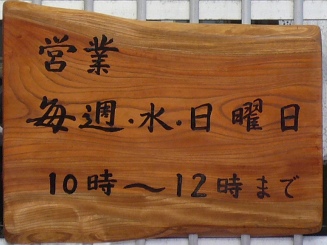 営業
毎週・水・日曜日
10時～12時まで